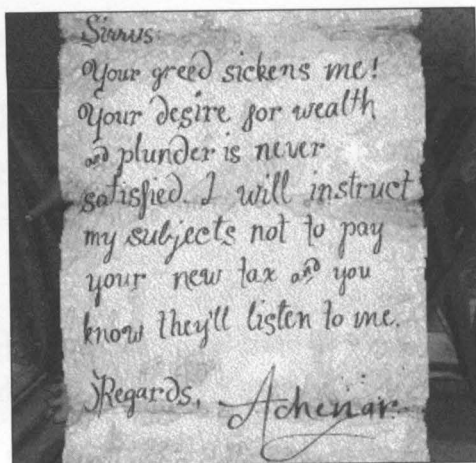 Sirrus:
Your greed sickens me!
Your desire for wealth
and plunder is never
satisfied. I will instruct
my subjects not to pay
your new tax and you
know they'll listen to me.
Regards, Achenar